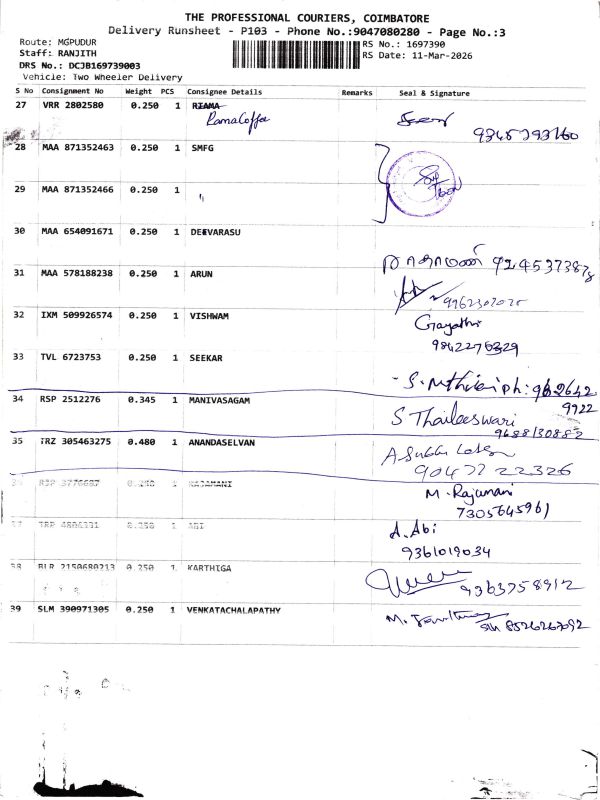 THE PROFESSIONAL COURIERS, COIMBATORE
Delivery Runsheet - P103 - Phone No.:9047080280 - Page No.:3
Route: MGPUDUR
Staff: RANJITH
DRS No.: DCJB169739003
Vehicle: Two Wheeler Delivery
RS No.: 1697390
RS Date: 11-Mar-2026
S No Consignment No Weight PCS Consignee Details Remarks Seal & Signature
27 VRR 2802580 0.250 1 RIAMA
RamaCoffee
9345793160
28 MAA 871352463 0.250 1 SMFG
29 MAA 871352466 0.250 1 "
30 MAA 654091671 0.250 1 DEEVARASU
9245373878
31 MAA 578188238 0.250 1 ARUN
32 IXM 509926574 0.250 1 VISHWAM
Gayathri
9842276329
33 TVL 6723753 0.250 1 SEEKAR
ph: 962642
9922
34 RSP 2512276 0.345 1 MANIVASAGAM
S Thaileeswari
9688130882
35 TRZ 305463275 0.480 1 ANANDASELVAN
9047722326
0.250 1 RAJAMANI
M. Rajamani
7305645961
TRP 4804331 0.250 1 ABI
A. Abi
9361019034
38 BLR 2150680213 0.250 1 KARTHIGA
9363758912
39 SLM 390971305 0.250 1 VENKATACHALAPATHY
8526267092